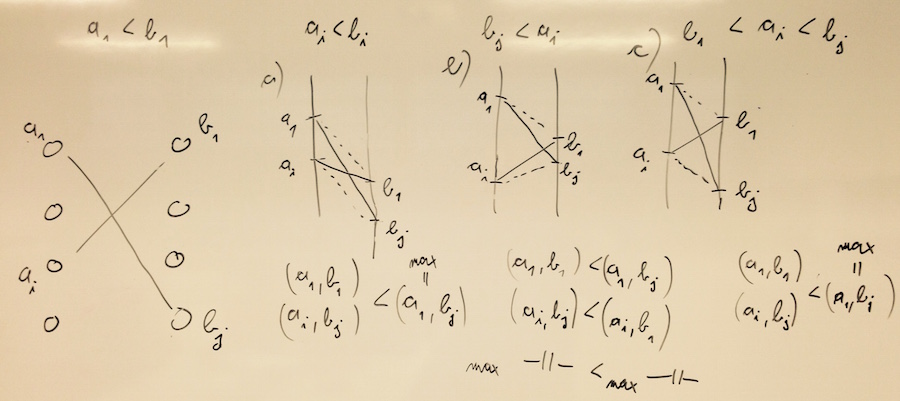 a₁ < b₁
a₁
b₁
a_i
b_j
a_i < b_i
a)
a₁
a_i
b₁
b_j
(a₁, b₁)
(a_i, b_j)
<
max
=
(a₁, b_j)
b_j < a_i
b)
a₁
a_i
b₁
b_j
(a₁, b₁) < (a₁, b_j)
(a_i, b_j) < (a_i, b₁)
max —||— < max —||—
c) b₁ < a_i < b_j
a₁
a_i
b₁
b_j
(a₁, b₁)
(a_i, b_j)
<
max
=
(a₁, b_j)